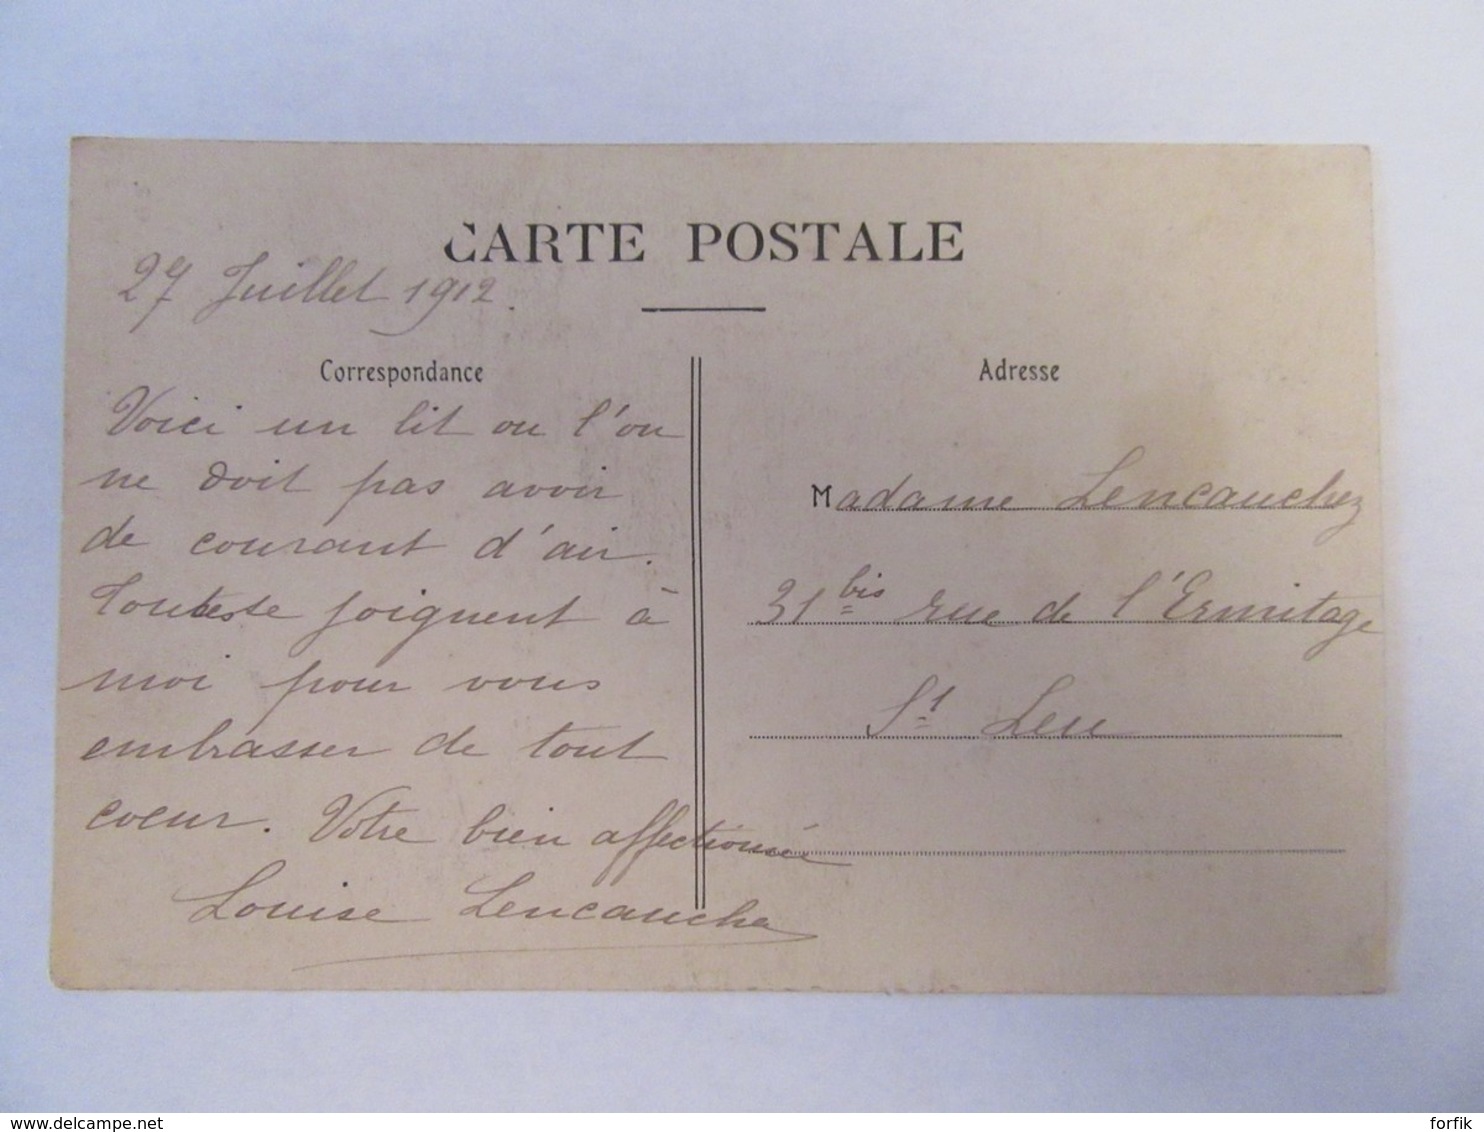 CARTE POSTALE
27 Juillet 1912.
Correspondance
Voici un lit ou l'on
ne doit pas avoir
de courant d'air.
joignent à
moi pour vous
embrasser de tout
coeur. Votre bien affectionnée
Louise Lencauchez
Adresse
Madame Lencauchez
31 bis rue de l'Ermitage
St Leu
www.delcampe.net
forfik